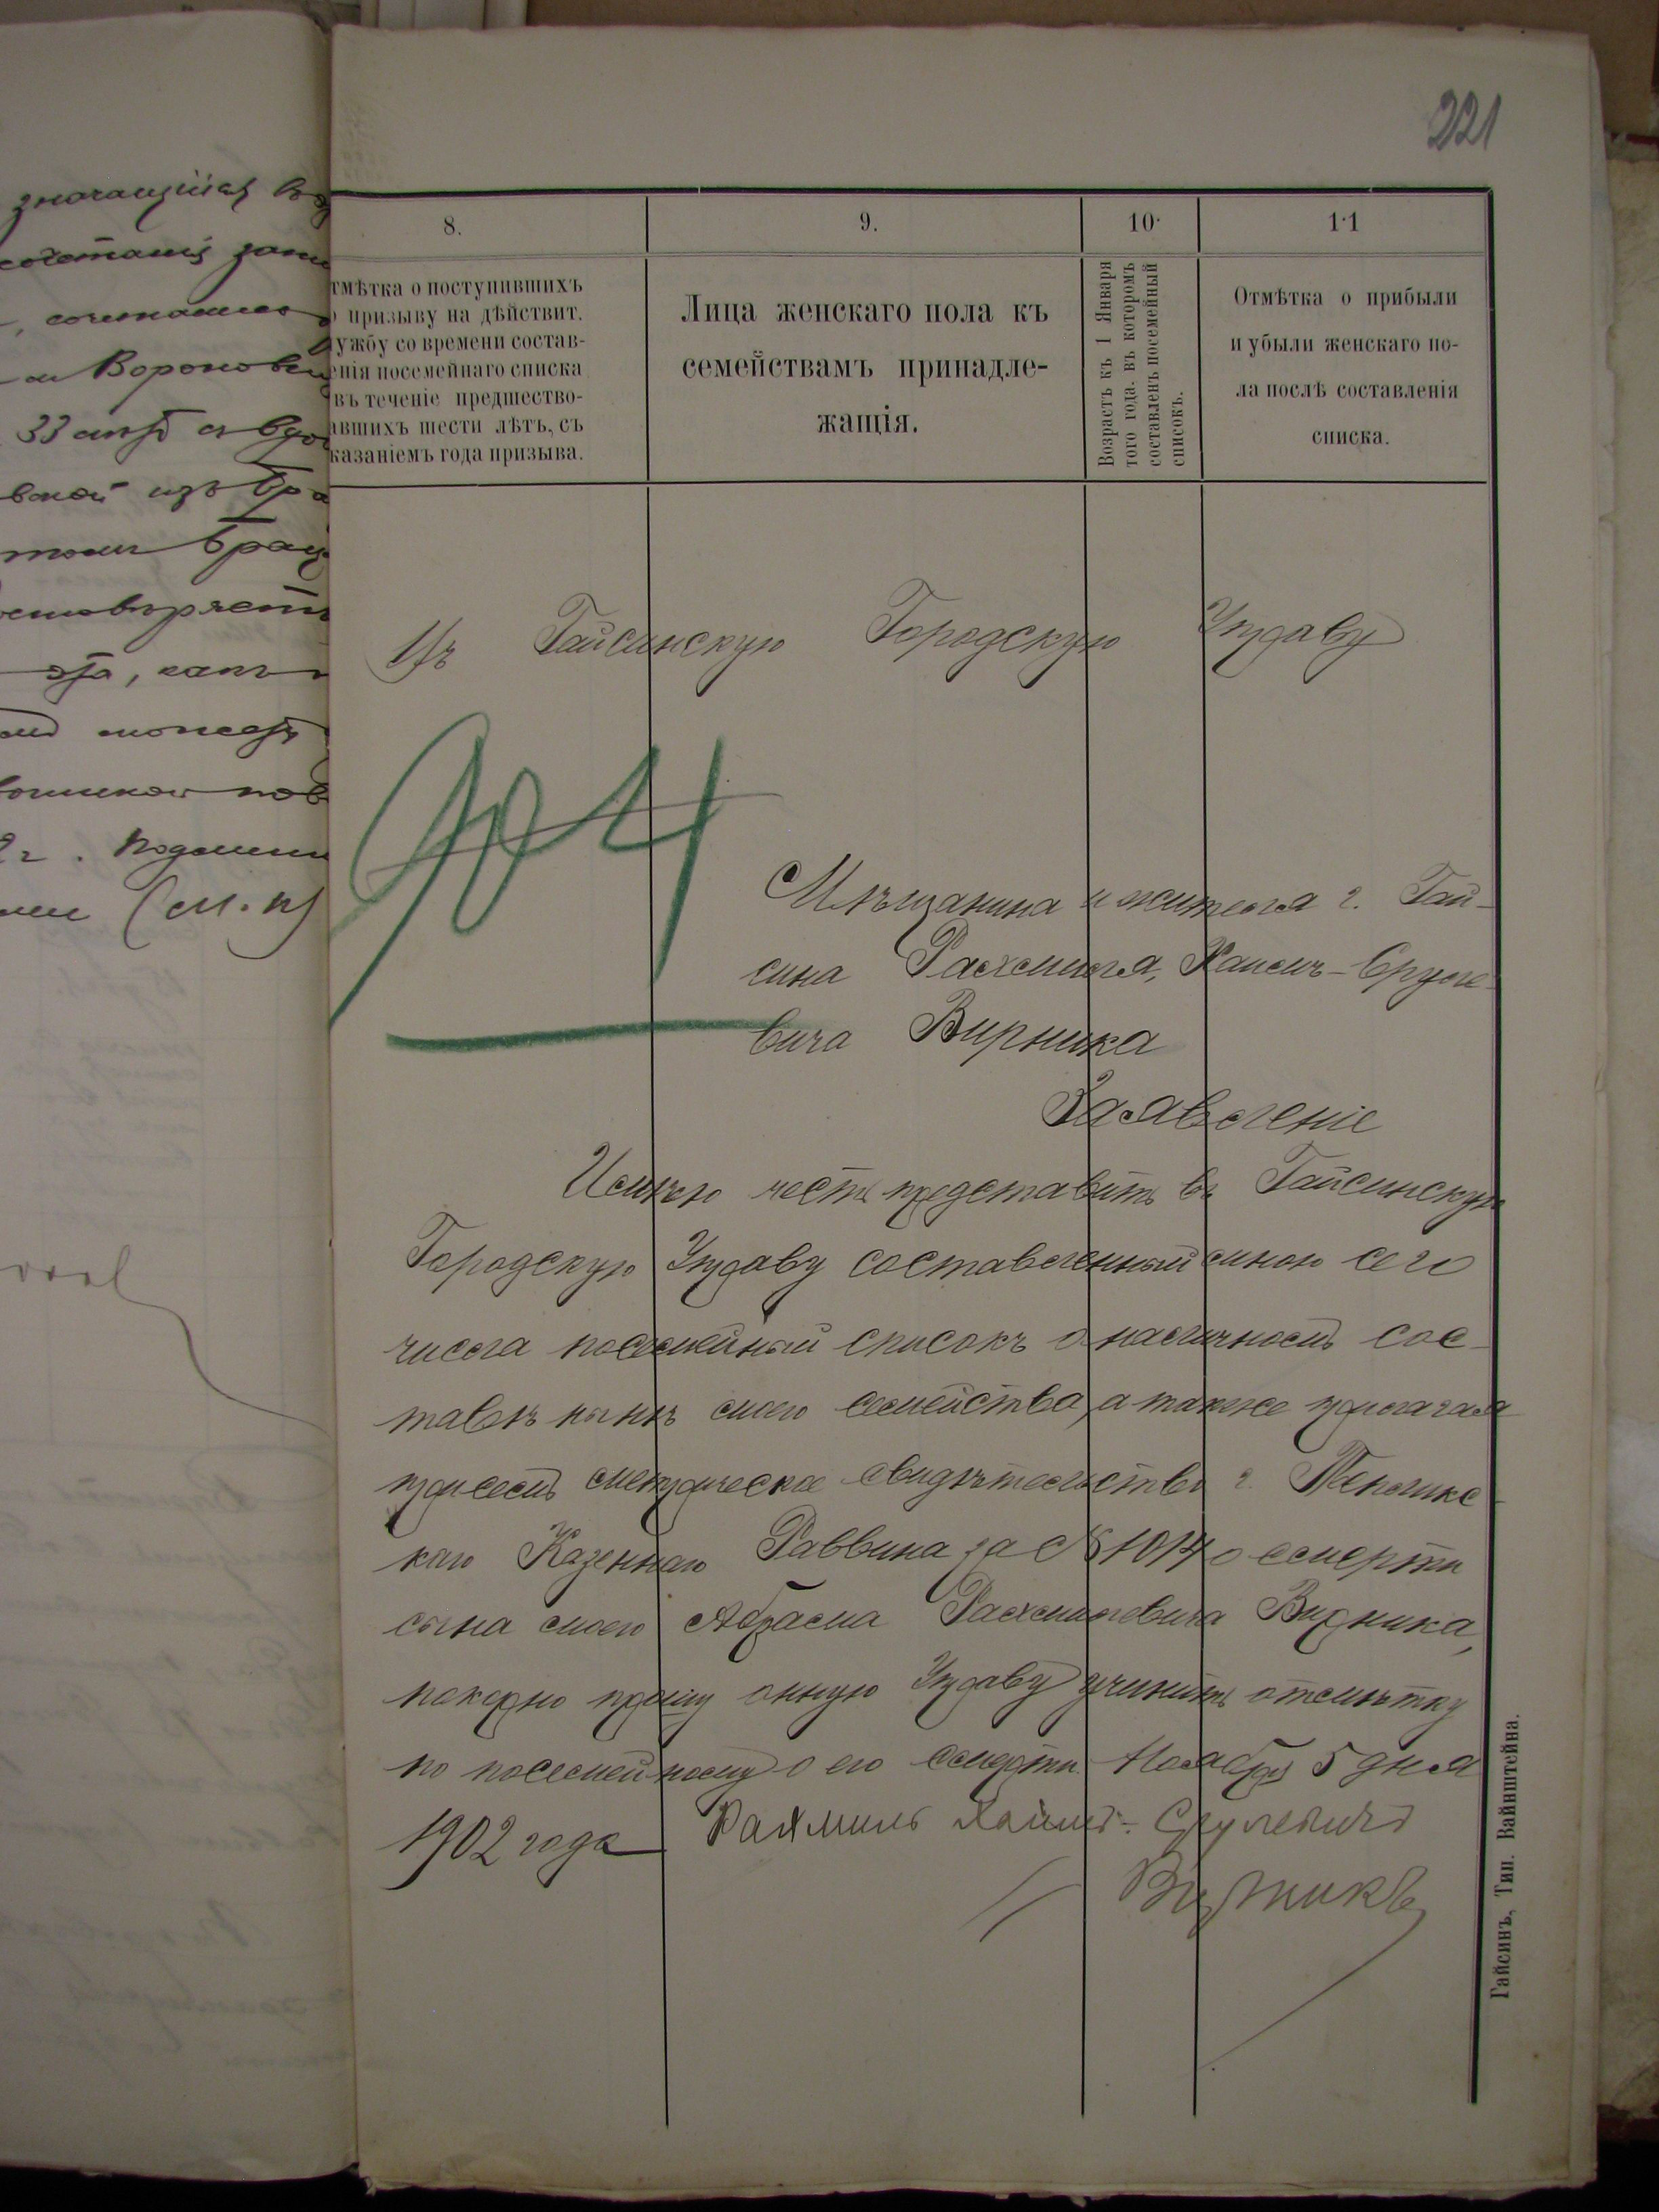 значащійся въ
сочетанія
сочетались
Вороновиц
33 лѣтъ съ вдо
вской изъ бра
томъ брач
стовѣряетъ
можетъ
2 г. Подлинн
(М. П.)
221
8.
9.
10.
11
тмѣтка о поступившихъ
о призыву на дѣйствит.
ужбу со времени состав-
енія посемейнаго списка
въ теченіе предшество-
авшихъ шести лѣтъ, съ
казаніемъ года призыва.
Лица женскаго пола къ
семействамъ принадле-
жащія.
Возрастъ къ 1 Января
того года, въ которомъ
составленъ посемейный
списокъ.
Отмѣтка о прибыли
и убыли женскаго по-
ла послѣ составленія
списка.
Въ Гайсинскую Городскую Управу
904
Мѣщанина и жителя г. Гай-
сина Рахмиля, Хаимъ-Сруле-
вича Вирника
Заявленіе
Имѣю честь представить въ Гайсинскую
Городскую Управу составленный мною сего
числа посемейный списокъ о наличности сос-
тавѣ нынѣ моего семейства, а также прилагая
присемъ метрическое свидѣтельство г. Тепликс-
каго Казеннаго Раввина за № 1014 о смерти
сына моего Абрама Рахмилевича Вирника,
покорно прошу онную Управу учинить отмѣтку
по посемейному о его смерти. Ноября 5 дня
1902 года Рахмиль Хаимъ-Срулевичъ
Вирникъ
Гайсинъ, Тип. Вайнштейна.